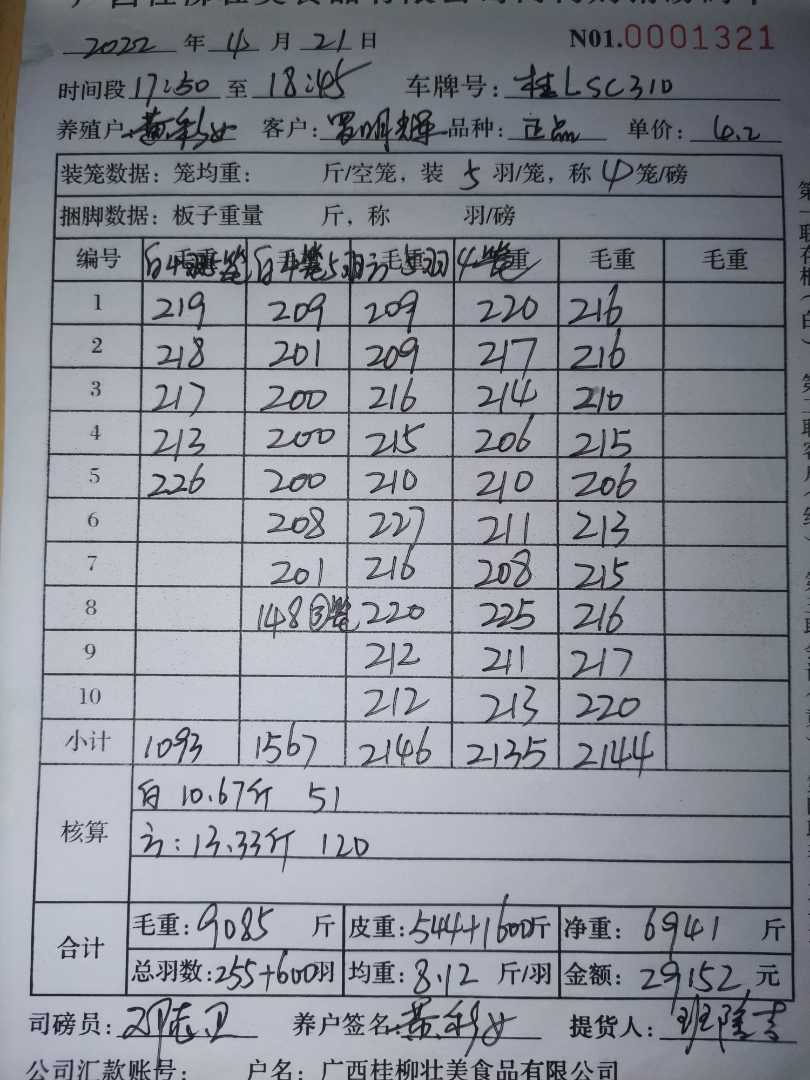 2022 年 4 月 21 日 N01.0001321
时间段 17:50 至 18:45 车牌号: 桂LSC310
养殖户: 黄彩女 客户: 罗明辉 品种: 正品 单价: 4.2
装笼数据: 笼均重: 斤/空笼, 装 5 羽/笼, 称 4 笼/磅
捆脚数据: 板子重量 斤, 称 羽/磅
编号 毛重 毛重 毛重 毛重 毛重 毛重
1 219 209 209 220 216
2 218 201 209 217 216
3 217 200 216 214 210
4 213 200 215 206 215
5 226 200 210 210 206
6 208 227 211 213
7 201 216 208 215
8 148 ③笼 220 225 216
9 212 211 217
10 212 213 220
小计 1093 1567 2146 2135 2144
核算
白 10.67斤 51
方: 13.33斤 120
合计
毛重: 9085 斤 皮重: 544+1600斤 净重: 6941 斤
总羽数: 255+600羽 均重: 8.12 斤/羽 金额: 29152 元
司磅员: 养户签名: 黄彩女 提货人:
公司汇款账号: 户名: 广西桂柳壮美食品有限公司